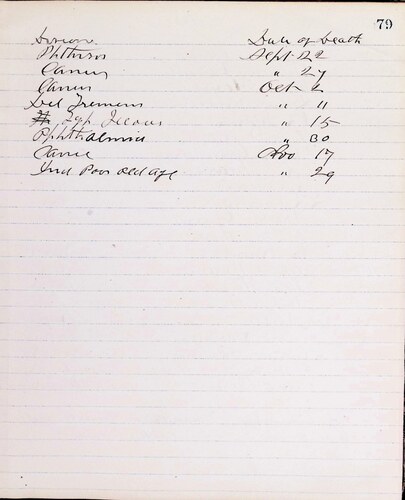 79
Disease Date of Death
Phthisis Sept 22
Cancer " 27
Cancer Oct 2
Del Tremens " 11
Typ " 15
Phthalmia " 30
Cance Nov 17
Ind Poor old age " 29